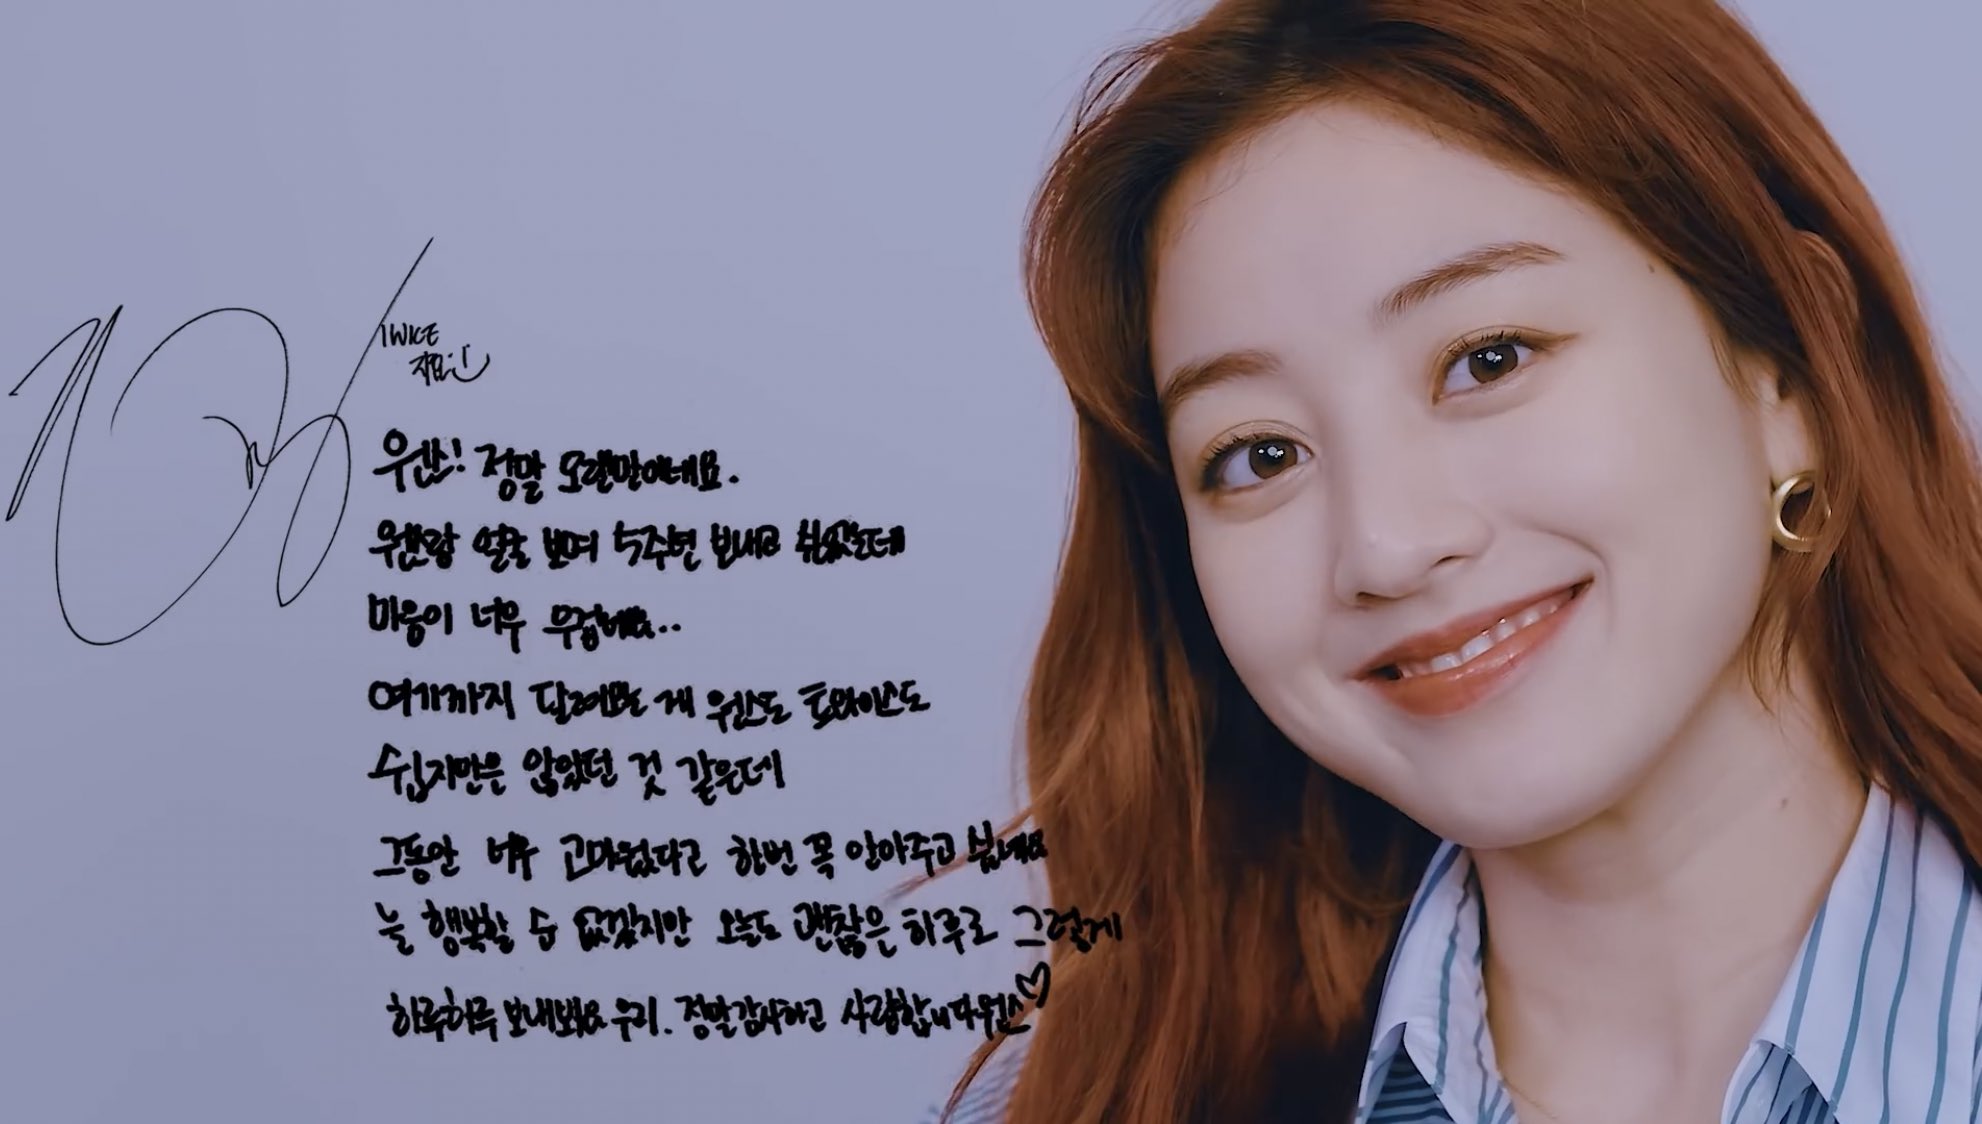 TWICE
지효:)
원스! 정말 오랜만이네요.
원스랑 얼굴 보며 5주년 보내고 싶었는데
마음이 너무 무겁네요..
여기까지 달려오는 게 원스도 트와이스도
쉽지만은 않았던 것 같은데
그동안 너무 고마웠다고 한번 꼭 안아주고 싶네요
늘 행복할 순 없겠지만 오늘도 괜찮은 하루로 그렇게
하루하루 보내봐요 우리. 정말 감사하고 사랑합니다 원스♡